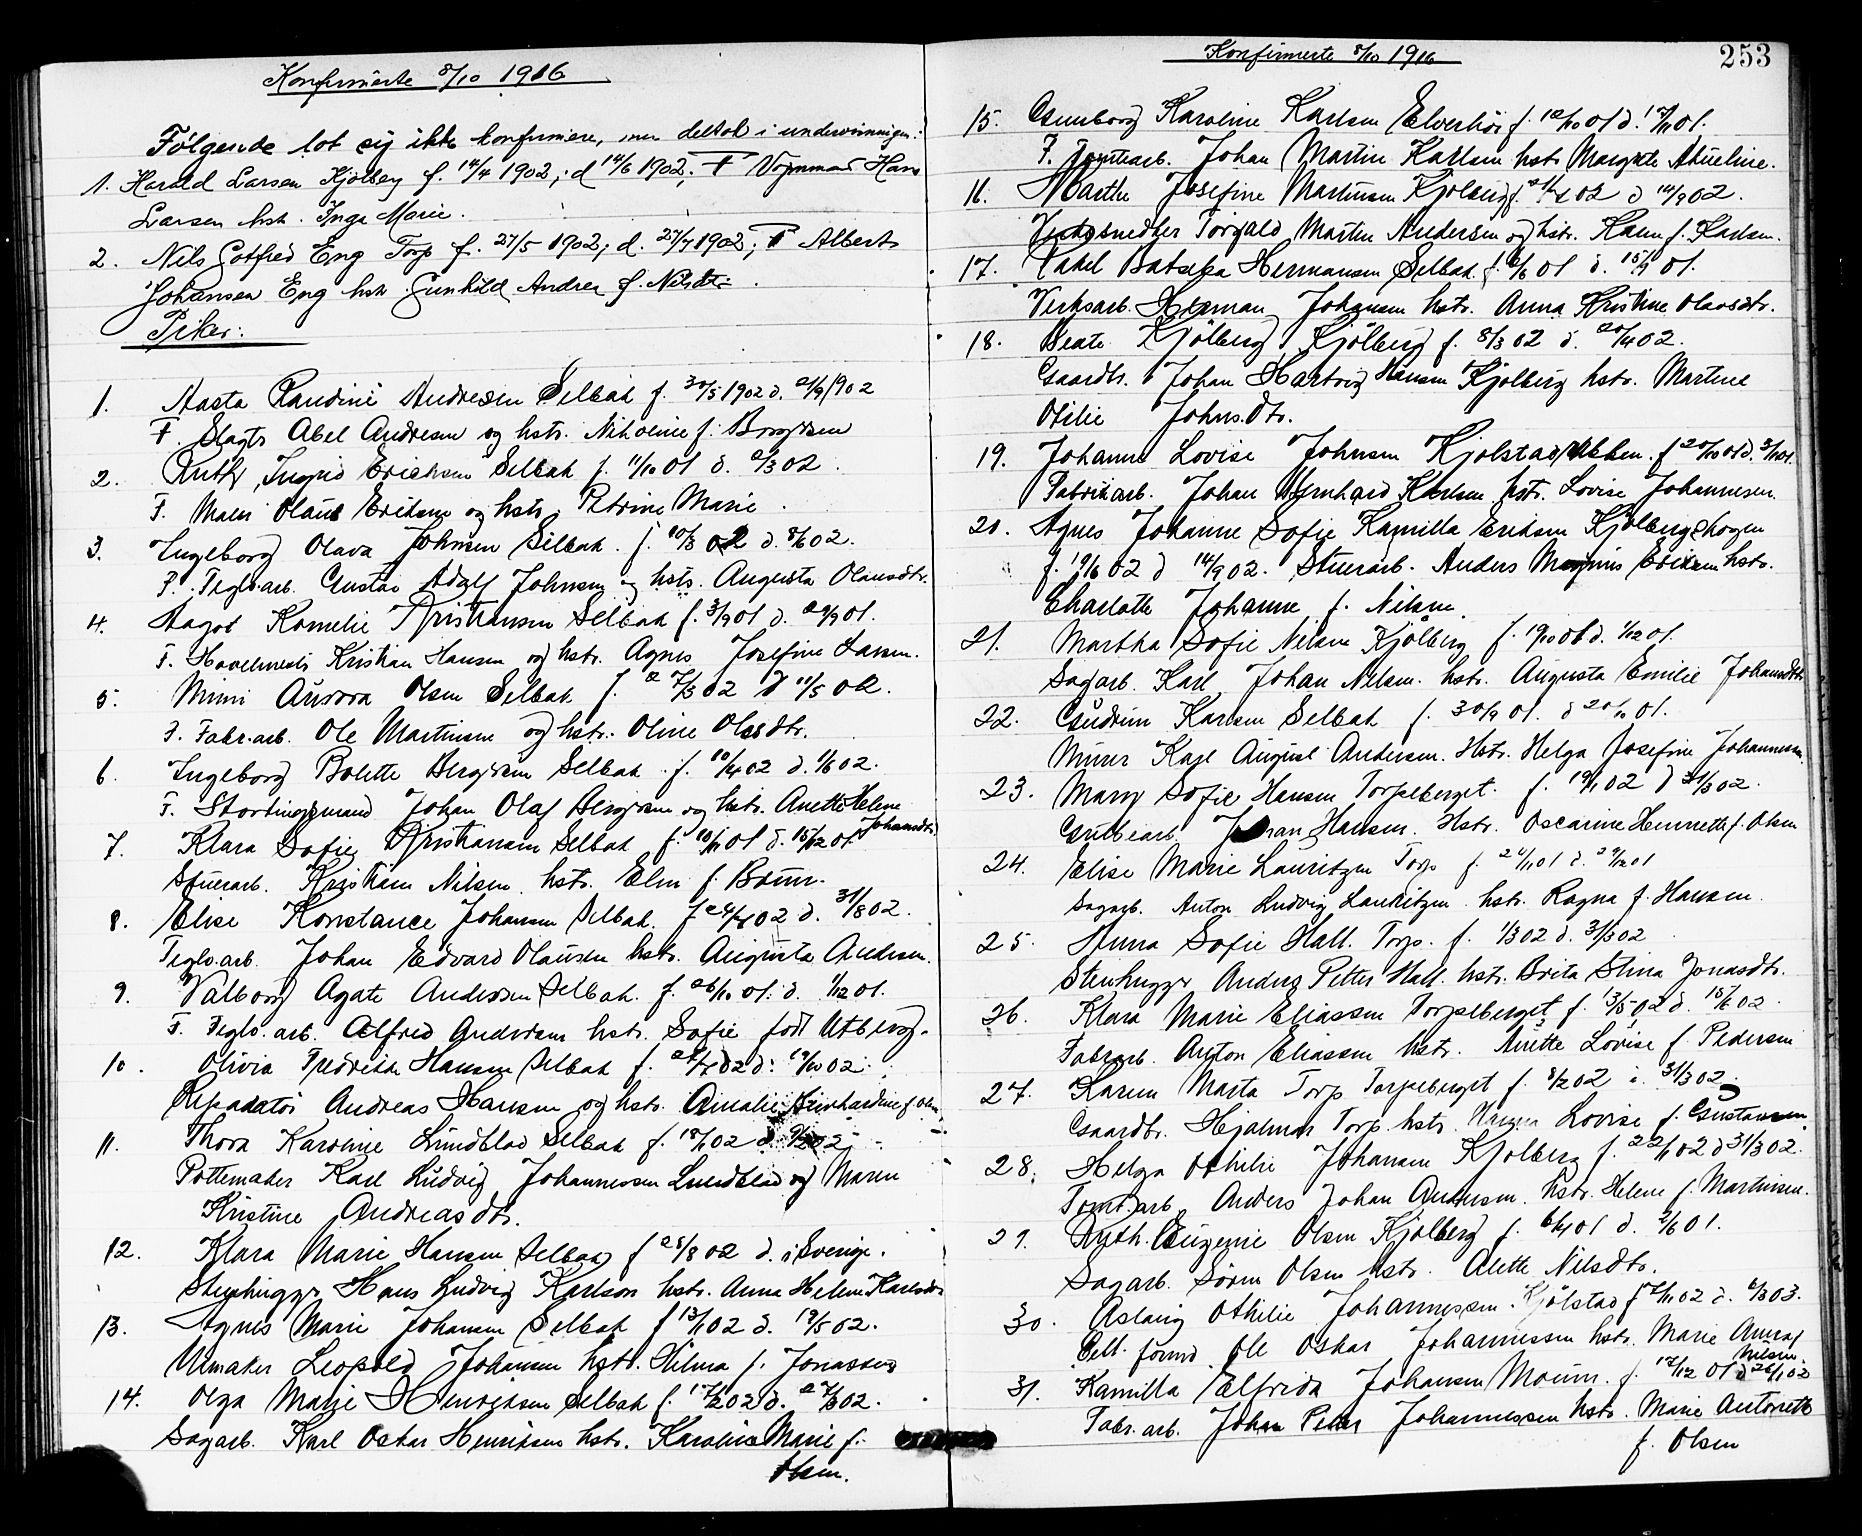 Konfirmerte 8/10 1916
Følgende lot sig ikke konfirmere, men deltok i undervisningen:
1. Harald Larsen Kjølberg f. 14/4 1902; d 14/6 1902; F Hans
Larsen hst. Inga Marie.
2. Nils Gotfred Eng Torp f. 27/5 1902; d. 27/7 1902; F Albert
Johansen Eng hst. Gunhild Andrea f. Nilsdtr.
Piker:
1. Aasta Randine Andresen Selbak f. 30/5 1902 d. 21/9 1902
F. Slagtr Abel Andresen og hstr. f. Borgersen
2. Ruth Ingrid Eriksen Selbak f. 11/10 01 d. 2/3 02.
F. Maler Olaus Eriksen og hstr. Petrine Marie.
3. Ingeborg Olava Johnsen Selbak. f. 10/3 02 d. 8/6 02.
F. Teglv.arb. Gustav Adolf Johnsen og hstr. Augusta Olausdtr.
4. Aagot Kornelie Kristiansen Selbak f. 3/9 01 d. 29/9 01.
F. Høvelmestr Kristian Hansen og hstr. Agnes Josefine Larsen.
5. Mimi Aurora Olsen Selbak f. 27/3 02 d 11/5 02.
F. Fabr.arb. Ole Martinsen og hstr. Oline Olsdtr.
6. Ingeborg Bolette Bergersen Selbak f. 10/4 02 d. 1/6 02.
F. Stortingsmand Johan Olaf Bergersen og hstr. Anette Helene
Johansdtr.
7. Klara Sofie Kristiansen Selbak f. 10/11 01 d. 15/12 01.
Stuerarb. Kristian Nilsen hstr. Elin f. Brun.
8. Elise Konstance Johansen Selbak. f 24/4 02 d. 31/8 02.
Teglv.arb. Johan Edvard Olausen hstr. Augusta Andersen.
9. Valborg Agate Andersen Selbak. f. 26/10 01. d. 1/12 01.
F. Teglv.arb. Alfred Andersen hstr. Sofie født Utberg.
10. Olivia Fredrikke Hansen Selbak f. 27/7 02 d. 19/10 02.
Reparatør Andreas Hansen og hstr. Amalie Reinhardine f Olsen
11. Thora Karoline Lundblad Selbak f. 18/1 02 d. 9/2 02
Pottemaker Karl Ludvig Johannessen Lundblad og Maren
Kristine Andreasdtr.
12. Klara Marie Hansen Selbak f 25/8 02 d. i Sverige.
Stenhugger Hans Ludvig Karlson hstr. Anna Helene Karlsdtr
13. Agnes Marie Johansen Selbak f 13/1 02 d. 19/5 02.
Urmaker Leopold Johansen hstr. Hilma f. Jonassen
14. Olga Marie Henriksen Selbak f. 17/2 02 d. 27/3 02.
Sagarb. Karl Oskar Henriksen hstr. Karoline Marie f.
Olsen.
Konfirmerte 8/10 1916
253
15. Gunborg Karoline Karlsen Elverhøi f. 12/10 01 d. 17/11 01.
F. Tomtearb. Johan Martin Karlsen hstr. Margrete Abueline.
16. Marthe Josefine Martinsen Kjølberg f. 21/4 02 d 14/9 02.
Verksmedster Torvald Martin Andersen og hstr. Karen f. Karlsen.
17. Rakel Batseba Hermansen Selbak f. 6/6 01 d. 15/9 01.
Verksarb. Herman Johansen hstr. Anna Kristine Olavsdtr.
18. Beate Kjølberg Kjølberg f. 8/3 02 d. 20/4 02.
Gaardbr. Johan Hartvig Hansen Kjølberg hstr. Martine
Otilie Johns.dtr.
19. Johanne Lovise Johnsen Kjølstad f 20/10 01 d. 3/11 01.
Fabrikarb. Johan Bernhard Karlsen hstr. Lovise Johannesen.
20. Agnes Johanne Sofie Kamilla Eriksen Kjølbergskogen
f. 19/6 02 d 14/9 02. Stuerarb. Anders Magnus Eriksen hstr.
Charlotte Johanne f. Nilsen.
21. Martha Sofie Nilsen Kjølberg f. 19/10 01 d. 1/12 01.
Sagarb. Karl Johan Nilsen. hstr. Augusta Emilie Johansdtr
22. Gudrun Karlsen Selbak f. 30/9 01. d 20/10 01.
Murer Karl August Andersen. Hstr. Helga Josefine Johannesen.
23. Mary Sofie Hansen Torpeberget. f. 19/1 02 d 31/3 02.
Grubearb. Johan Hansen. Hstr. Oscarine Henriette f. Olsen
24. Elise Marie Lauritzen Torp f. 24/11 01 d. 29/12 01
Sagarb. Anton Ludvig Lauritzen hstr. Ragna f. Hansen.
25. Anna Sofie Hall. Torp. f. 1/3 02 d. 31/3 02
Stenhugger Anders Petter Hall. hstr. Brita Stina Jonasdtr.
26. Klara Marie Eliassen Torpeberget f. 13/5 02 d. 15/6 02.
Fabr.arb. Anton Eliassen hstr. Anette Lovise f. Pedersen
27. Karen Marta Torp Torpeberget f. 8/2 02 d. 31/3 02
Gaardbr. Hjalmar Torp hstr. Lovise f. Gustavsen
28. Helga Othilie Johansen Kjølberg f. 22/1 02 d 31/3 02.
Tomt.arb. Anders Johan Andersen. hstr. Helene f. Martinsen.
29. Ruth Eugenie Olsen Kjølberg f. 6/4 01 d. 2/6 01.
Sagarb. Søren Olsen hstr. Alette Nilsdtr.
30. Aslaug Othilie Johannessen. Kjølstad f 27/11 02 d. 6/3 03.
Cell. formd. Ole Oskar Johannessen hstr. Marie Anna f
Nilsen.
31. Kamilla Elfrida Johansen Moum. f. 17/12 01 d 26/1 02
Fabr.arb. Johan Peter Johannessen hstr. Marie Antonette
f. Olsen